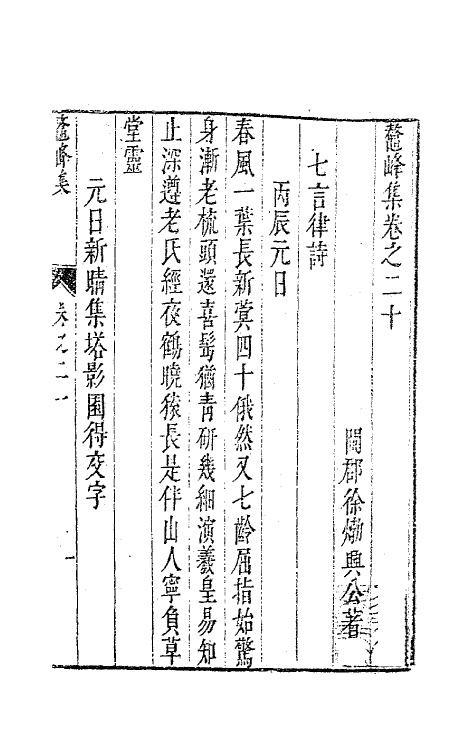 鼇峰集卷之二十
閩郡徐𤊹興公著
七言律詩
丙辰元日
春風一葉長新蓂四十俄然又七齡屈指始驚
身漸老梳頭還喜髩猶青研幾細演羲皇易知
止深遵老氏經夜鶴曉猿長是伴山人寧負草
堂靈
元日新晴集塔影園得交字
鼇峰集
卷之二十
一